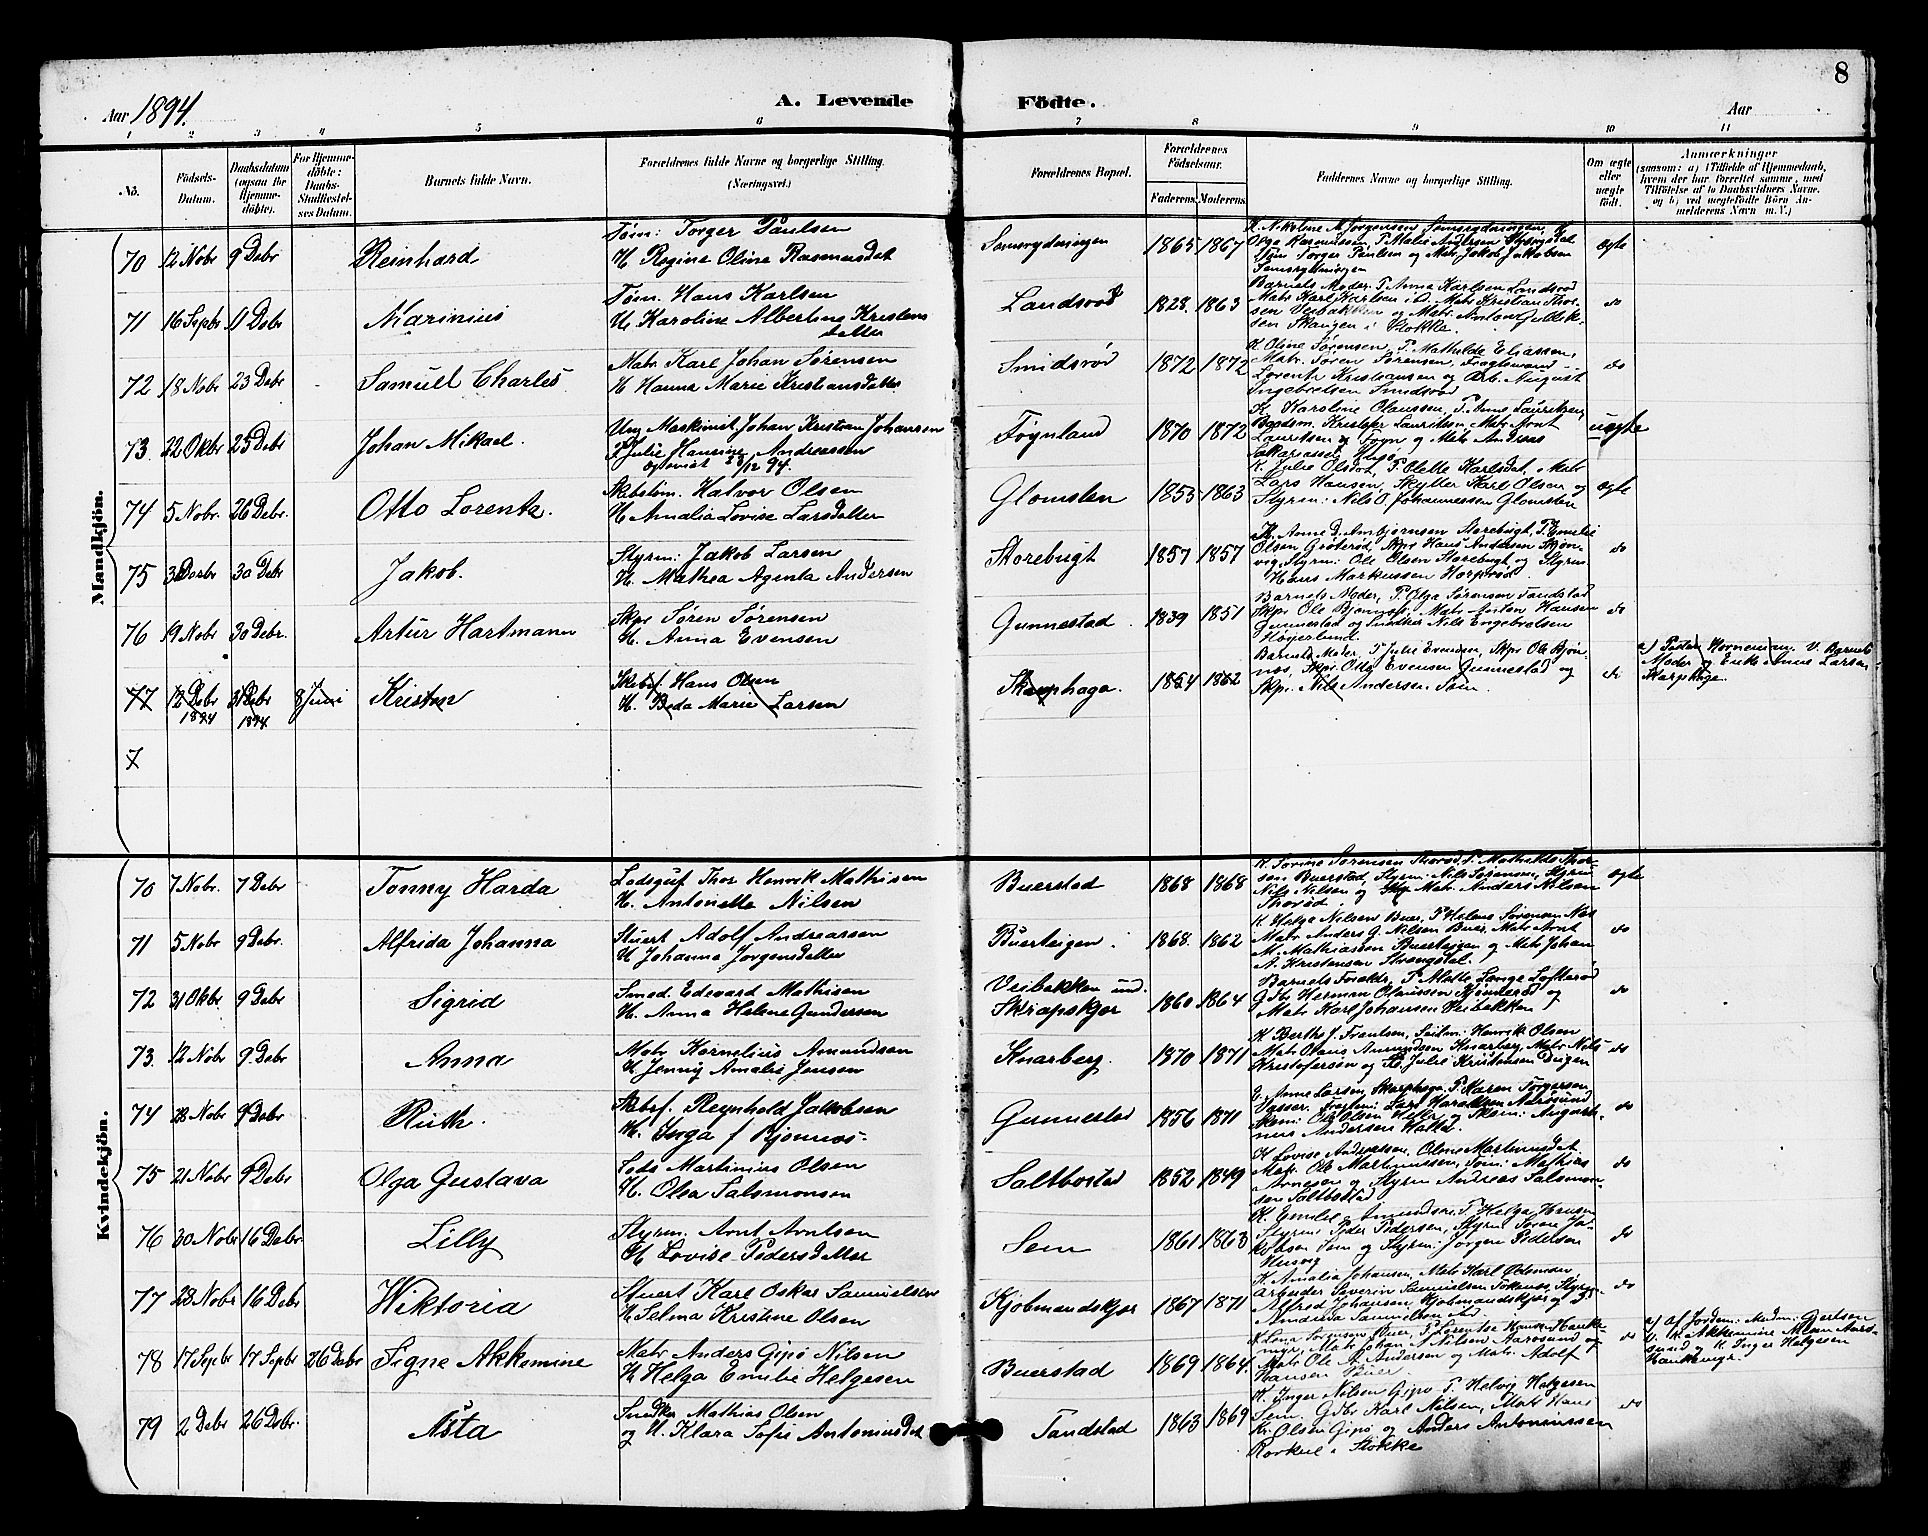 8
Aar 1894.
A. Levende Födte.
Aar
1 2 3 4 5 6 7 8 9 10 11
No.
Födsels-Datum.
Daabsdatum (ogsaa for Hjemmedöbte).
For Hjemmedöbte: Daabs-Stadfæstelses Datum.
Barnets fulde Navn.
Forældrenes fulde Navne og borgerlige Stilling. (Næringsvei.)
Forældrenes Bopæl.
Forældrenes Födselsaar.
Faderens. Moderens.
Faddernes Navne og borgerlige Stilling.
Om ægte eller uægte födt.
Anmærkninger
(saasom: a) i Tilfælde af Hjemmedaab, hvem der har forrettet samme, med Tilföielse af to Daabsvidners Navne. og b) ved uægtefödte Börn Anmelderens Navn m. V.)
Mandkjön.
70 12 Nobr 9 Debr Reinhard
Töm: Torger Paulsen
H. Regine Oline Rasmusdat
Semsrydningen 1865 1867
Töm Torger Paulsen og Matr. Jakob Jakobsen
Semsrydningen
ægte
71 16 Sepbr 9 Debr Marinius
Töm. Hans Karlsen
H. Karoline Albertine Kristens
datter
Landsrød 1828. 1863
Barnets Moder. P. Anne Karlsen Landsrød
Matr Karl Karlsen i D. Matr Kristian Thor-
sen Veibakken og Matr. Anton Gullik-
sen Skaugen i Stokke.
do
72 18 Nobr 23 Debr Samuel Charles
Matr Karl Johan Sørensen
H. Hanna Marie Kristiansdatter
Smidsrød 1872 1872
K Oline Sørensen, P. Mathilde Eliassen,
Matr. Søren Sørensen,
Lorentz Kristiansen og Arb. August
Ingebretsen Smidsrød
do
73. 22 Okbr 25 Debr Johan Mikael.
Ung Maskinist Johan Kristian Johansen
P Julie Hansine Andreassen
23/12 94.
Føynland 1870 1872
K. Karoline Olaussen, P. Anne Lauritzen,
Baadsm. Kristofer Lauritsen, Matr Arnt
Lauritsen Føyn og Matr Andreas
Sakariassen Husø
uægte
74 5 Nobr. 26 Debr. Otto Lorentz.
Skibstöm. Halvor Olsen
H. Amalia Lovise Larsdatter
Glomsten 1853 1863
K. Julie Olsdat, P. Olette Karlsdat, Matr
Lars Hansen, Skytter Karl Olsen og
Styrm: Nils O. Johannessen Glomsten
ægte
75 30 Debr Jakob.
Styrm: Jakob Larsen
H. Mathea Agenta Andersen
Storebugt 1857 1857
K. Anne D. Arnbjørnsen Storebugt, P. Emilie
Olsen Grøterød, Skpr Hans Andersen Skjøn-
vig, Styrm: Ole Olsen Storebugt og Styrm
Hans Markussen Horperød
do
76 19 Nobr 30 Debr. Artur Hartmann
Skpr Søren Sørensen
H. Anna Evensen
Gunnestad 1839 1851
Barnets Moder, P. Olga Sørensen Tandstad
Skpr Ole Bjønnes, Matr Anton Hansen
Gunnestad og Snedker Nils Engebretsen
Høyjerlund.
do
77 12 Debr 1894 31 Debr 1894 8 Juni Kristen
Skibsf. Hans Olsen
H. Beda Marie Larsen
Skarphaga. 1854 1862
Barnets Moder, P Julie Evensen, Skpr Ole Bjøn-
nes, Skpr. Otto Evensen Gunnestad og
Skpr. Nils Andersen Sem.
do
Moder og Enke Anne Larsen
Skarphaga.
7
Kvindekjön.
70 7 Nobr. 7 Debr Tonny Harda
Lodsgut Thor Henrik Mathisen
H. Antonette Nilsen
Buerstad 1868 1868
K. Sørensen Thorød, P. Mathilde Thor-
sen Buerstad, Styrm: Nils Sørensen, Styrm
Nils Nilsen og Matr Anders Nilsen
Thorød.
ægte
71 5 Nobr 9 Debr. Alfrida Johanna
Stuert Adolf Andreassen
H Johanna Jørgensdatter
Buerteigen. 1868. 1862
K Helga Nilsen Buer, P Helene Sørensen
Matr Anders G. Nilsen Buer, Matr Arnt
M. Mathiassen Buerteigen og Matr Johan
A. Kristensen Strengsdal.
do
72 31 Okbr 9 Debr Sigrid
Smed. Edevard Mathisen
H. Anna Helene Gundersen
Veibakken und. Skrapskjær 1860 1864
Barnets Forældr, P Mette Lovise Løfterød
Gdbr Herman Olaussen og
Matr Karl Johansen Veibakken
do
73. 12 Nobr 9 Debr. Anna
Matr Kornelius Amundsen
H Jenny Amalie Jensen
Knarberg. 1870 1871
K Berthe J. Frantsen, Seilm: Henrik Olsen
Matr Olaus Amundsen Knarberg, Matr Nils
Kristofersen og P. Julie Kristensen Dugen
do
74 28 Nobr 9 Debr Ruth.
Skibsf. Reynhold Jakobsen
H. Inga f Bjønnes.
Gunnestad 1856 1871
E. Anne Larsen Skarphaga, P Karen Torgersen
Vasser, Lars Haraldsen Aarøsund
Ole Olsen og
Andersen Hella.
do
75 21 Nobr 9 Debr Olga Gustava
Lods Martinius Olsen
H. Olsa Salomonsen
Saltbostad 1852 1849
K Lovise Andersen, Oline Martinusdat.
Matr. Ole Martinussen, Töm: Mathias
Arnesen og Styrm Andreas Salomon-
sen Saltbostad
do
76 30 Nobr 16 Debr. Lilly
Styrm. Arnt Arntsen
H Lovise Pedersdatter
Sem 1861 1863
K. Emilie Amundsen, P. Helga Hansen
Styrm Peder Pedersen, Styrm Søren Ja-
kobsen Sem og Styrm: Jørgen Pedersen
Husvig
do
77 23 Nobr 16 Debr Wiktoria
Stuert Karl Oskar Samuelsen
H Selma Kristine Olsen
Kjøbmandskjær 1867 1871
K. Amalia Johansen, Matr Karl Edvmar
Arbeider Severin Samuelsen Tokenes, Styrm.
Alfred Johansen Kjøbmandskjær og P
Andrea Samuelsen
do
78 17 Sepbr 17 Sepbr 26 Debr Signe Akkomine
Matr Anders Gipø Nilsen
H Helga Emilie Helgesen
Buerstad 1869 1864.
K Lena Sørensen Buer, P Lorentse Hansen Hauke-
myr, Matr Johan N Nilsen Aarøsund og
Matr Ole A. Andersen og Matr. Adolf
Hansen Buer
do
a) Af Jordem: Madm. Gjertsen
V. K Akkemine Nilsen Aarø-
sund og K. Inger Helgesen
Haukemyr.
79 2 Debr 26 Debr. Asta
Snedker Mathias Olsen
og H. Klara Sofie Antoniusdat
Tandstad 1863 1869
K. Inger Nilsen Gipø P. Helvig Helgesen
Sem, Gdbr Karl Nilsen, Matr Hans
Kr. Olsen Gipø og Anders Antoniussen
Rørkul i Stokke
do